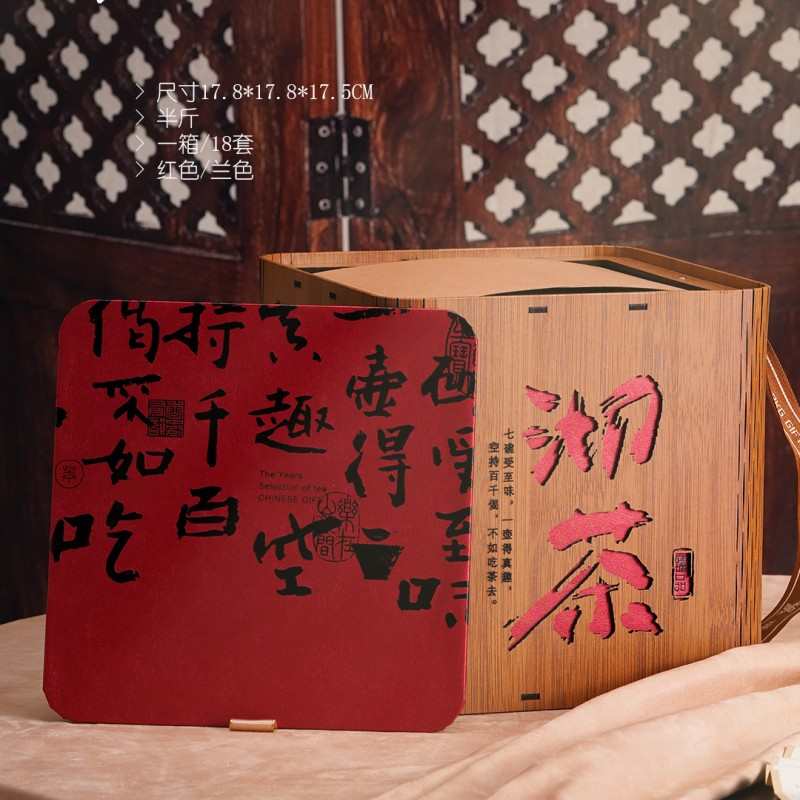 > 尺寸17.8*17.8*17.5CM
> 半斤
> 一箱/18套
> 红色/兰色
碗受至味
一壺得
真趣
空
持千百
偈不如吃
The Years
Selection of tea
CHINESE GIFT
湖茶
七碗受至味，一壶得真趣，
空持百千偈，不如吃茶去。